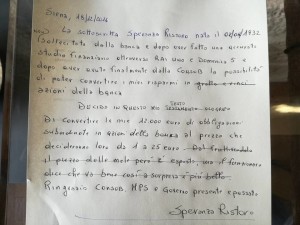 Siena, 18/12/2014
Io sottoscritta Speranza Ristoro nata il 01/04/1932
sollecitata dalla banca e dopo aver fatto un accurato
studio finanziario attraverso RAI uno e Domenica 5 e
dopo aver avuto finalmente dalla CONSOB la possibilità
di poter convertire i miei risparmi in
azioni della banca
DECIDO IN QUESTO MIO
Di convertire le mie 12.000 euro di obbligazioni
subordinate in azioni della banca al prezzo che
decideranno loro da 1 a 25 euro
il prezzo delle mele però è esposto, ma il funzionario
dice che va bene così a sorpresa è più bello
Ringrazio CONSOB, MPS e Governo presente e passato
Speranza Ristoro